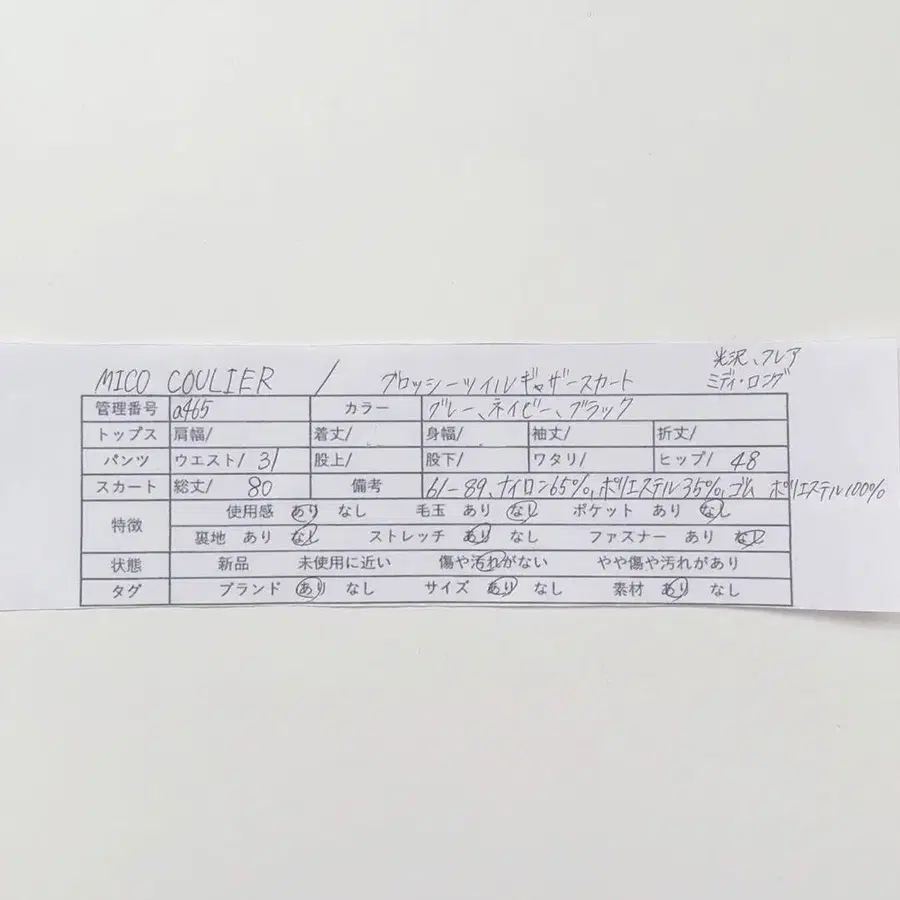 光沢、フレア
MICO COULIER / ブロッシーツイルギャザースカート ミディ・ロング
管理番号 a465 カラー グレー、ネイビー、ブラック
トップス 肩幅/ 着丈/ 身幅/ 袖丈/ 折丈/
パンツ ウエスト/ 31 股上/ 股下/ ワタリ/ ヒップ/ 48
スカート 総丈/ 80 備考 61-89、ナイロン65%、ポリエステル35%、ゴム ポリエステル100%
特徴 使用感 あり なし 毛玉 あり なし ポケット あり なし
裏地 あり なし ストレッチ あり なし ファスナー あり なし
状態 新品 未使用に近い 傷や汚れがない やや傷や汚れがあり
タグ ブランド あり なし サイズ あり なし 素材 あり なし